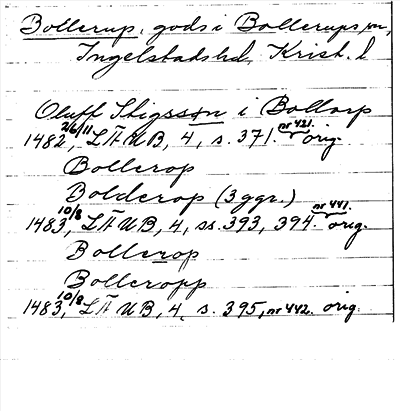 Bollerup, gods i Bollerups sn,
Ingelstads hd, Krist. l
Oluff Stigssøn i Boltorp
1482 26/11, LÄUB, 4, s. 371. nr 421. orig.
Bollerop
Bolderop (3 ggr.)
1483 10/8, LÄUB, 4, ss. 393, 394. nr 441. orig.
Bollerop
Bolleropp
1483 10/8, LÄUB, 4, s. 395, nr 442. orig.